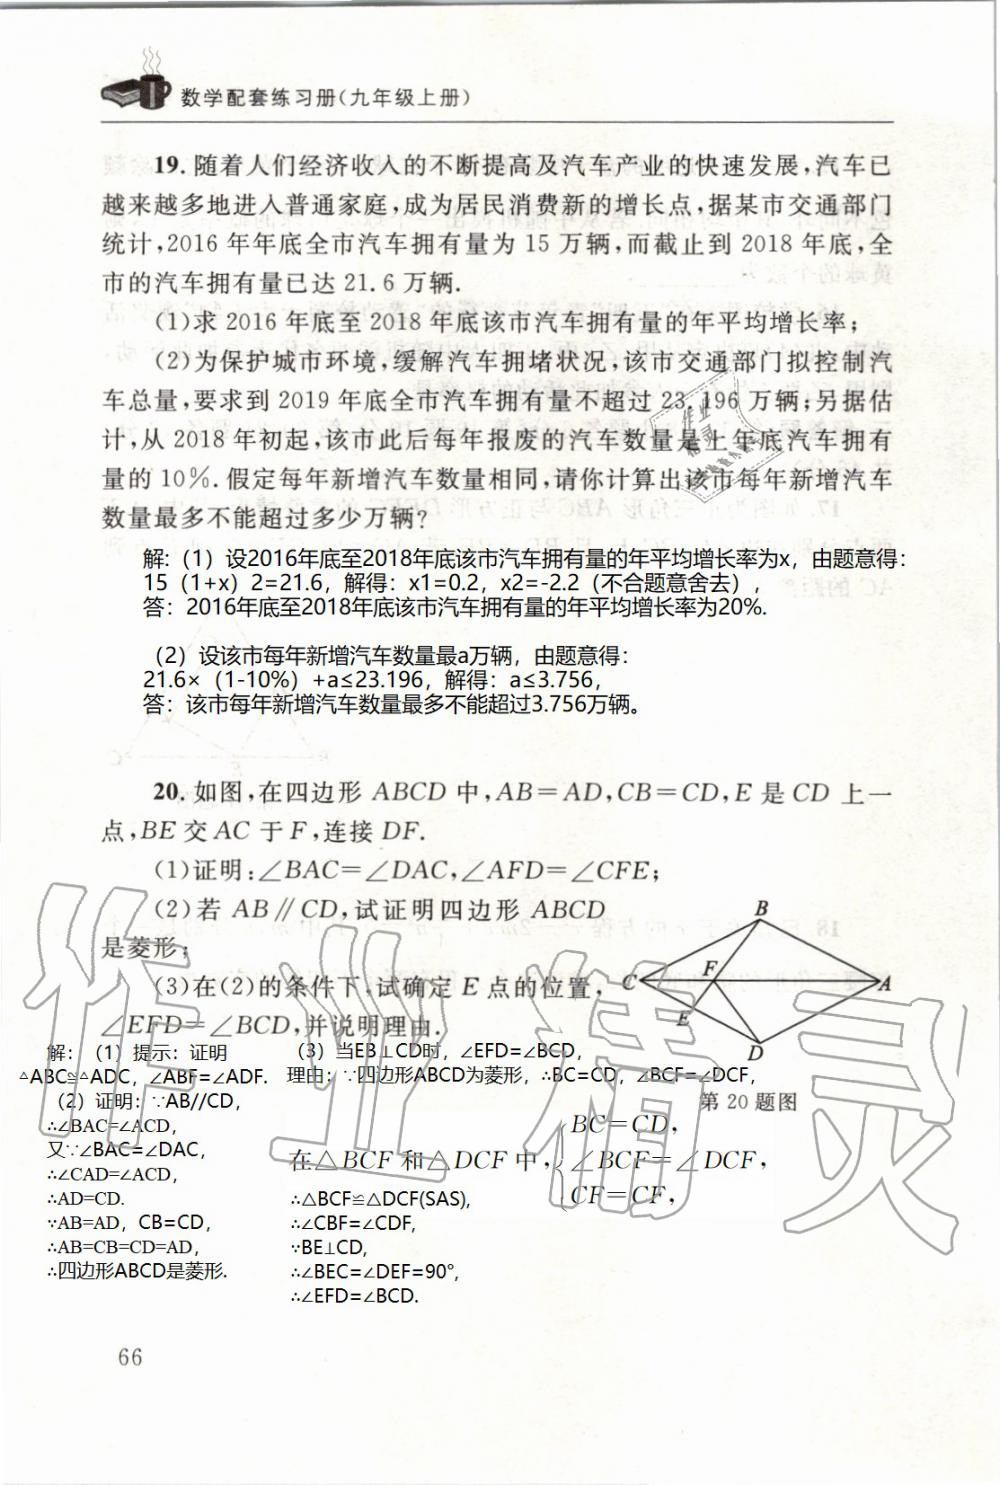 数学配套练习册(九年级上册)
19.随着人们经济收入的不断提高及汽车产业的快速发展,汽车已
越来越多地进入普通家庭,成为居民消费新的增长点,据某市交通部门
统计,2016年年底全市汽车拥有量为15万辆,而截止到2018年底,全
市的汽车拥有量已达21.6万辆.
(1)求2016年底至2018年底该市汽车拥有量的年平均增长率;
(2)为保护城市环境,缓解汽车拥堵状况,该市交通部门拟控制汽
车总量,要求到2019年底全市汽车拥有量不超过23.196万辆;另据估
计,从2018年初起,该市此后每年报废的汽车数量是上年底汽车拥有
量的10%.假定每年新增汽车数量相同,请你计算出该市每年新增汽车
数量最多不能超过多少万辆?
解:(1)设2016年底至2018年底该市汽车拥有量的年平均增长率为x,由题意得:
15(1+x)2=21.6,解得:x1=0.2,x2=-2.2(不合题意舍去),
答:2016年底至2018年底该市汽车拥有量的年平均增长率为20%.
(2)设该市每年新增汽车数量最a万辆,由题意得:
21.6×(1-10%)+a≤23.196,解得:a≤3.756,
答:该市每年新增汽车数量最多不能超过3.756万辆。
20.如图,在四边形ABCD中,AB=AD,CB=CD,E是CD上一
点,BE交AC于F,连接DF.
(1)证明:∠BAC=∠DAC,∠AFD=∠CFE;
(2)若AB∥CD,试证明四边形ABCD
是菱形;
(3)在(2)的条件下,试确定E点的位置,
∠EFD=∠BCD,并说明理由.
B
C
F
A
E
D
第20题图
解:(1)提示:证明
△ABC≌△ADC,∠ABF=∠ADF.
(2)证明:∵AB//CD,
∴∠BAC=∠ACD,
又∵∠BAC=∠DAC,
∴∠CAD=∠ACD,
∴AD=CD.
∵AB=AD,CB=CD,
∴AB=CB=CD=AD,
∴四边形ABCD是菱形.
(3)当EB⊥CD时,∠EFD=∠BCD,
理由:∵四边形ABCD为菱形,∴BC=CD,∠BCF=∠DCF,
在△BCF和△DCF中,
BC=CD,
∠BCF=∠DCF,
CF=CF,
∴△BCF≌△DCF(SAS),
∴∠CBF=∠CDF,
∵BE⊥CD,
∴∠BEC=∠DEF=90°,
∴∠EFD=∠BCD.
66
作业精灵